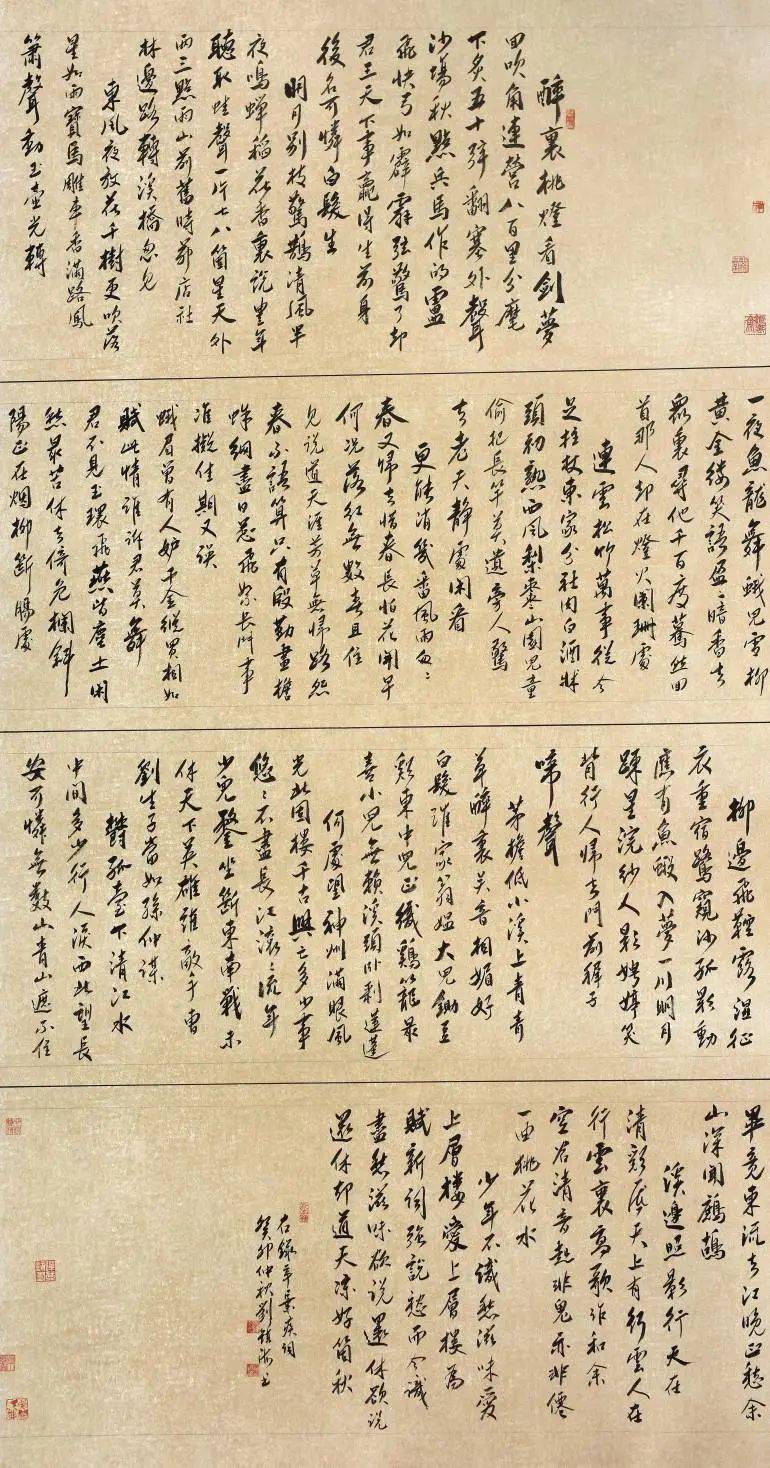 醉裏挑燈看劍夢
回吹角連營八百里分麾
下炙五十弦翻塞外聲
沙場秋點兵馬作的盧
飛快弓如霹靂弦驚了却
君王天下事贏得生前身
後名可憐白髮生
明月別枝驚鵲清風半
夜鳴蟬稻花香裏說豐年
聽取蛙聲一片七八箇星天外
兩三點雨山前舊時茅店社
林邊路轉溪橋忽見
東風夜放花千樹更吹落
星如雨寶馬雕車香滿路鳳
簫聲動玉壺光轉
一夜魚龍舞蛾兒雪柳
黃金縷笑語盈〻暗香去
眾裏尋他千百度驀然回
首那人却在燈火闌珊處
連雲松竹萬事從今
足拄杖東家分社肉白酒牀
頭初熟西風梨棗山園兒童
偷把長竿莫遣旁人驚
去老夫靜處閑看
更能消幾番風雨匆〻
春又歸去惜春長怕花開早
何況落紅無數春且住
見說道天涯芳草無歸路怨
春不語算只有殷勤畫檐
蛛網盡日惹飛絮長門事
准擬佳期又誤
蛾眉曾有人妒千金縱買相如
賦此情誰訴君莫舞
君不見玉環飛燕皆塵土閑
愁最苦休去倚危欄斜
陽正在烟柳斷腸處
柳邊飛鞚露溼征
衣重宿鷺窺沙孤影動
應有魚蝦入夢一川明月
踈星浣紗人影娉婷笑
背行人歸去門前稺子
啼聲
茅檐低小溪上青青
草醉裏吳音相媚好
白髮誰家翁媼大兒鋤豆
谿東中兒正織鷄籠最
喜小兒無賴溪頭卧剥蓮蓬
何處望神州滿眼風
光北固樓千古興亡多少事
悠〻不盡長江滾〻流年
少兜鍪坐斷東南戰未
休天下英雄誰敵手曹
劉生子當如孫仲謀
鬱孤臺下清江水
中間多少行人淚西北望長
安可憐無數山青山遮不住
畢竟東流去江晚正愁余
山深聞鷓鴣
溪邊照影行天在
清谿底天上有行雲人在
行雲裏高歌誰和余
空谷清音起非鬼亦非僊
一曲桃花水
少年不識愁滋味愛
上層樓愛上層樓爲
賦新詞強說愁而今識
盡愁滋味欲說還休欲說
還休却道天涼好箇秋
右錄辛棄疾詞
癸卯仲秋劉